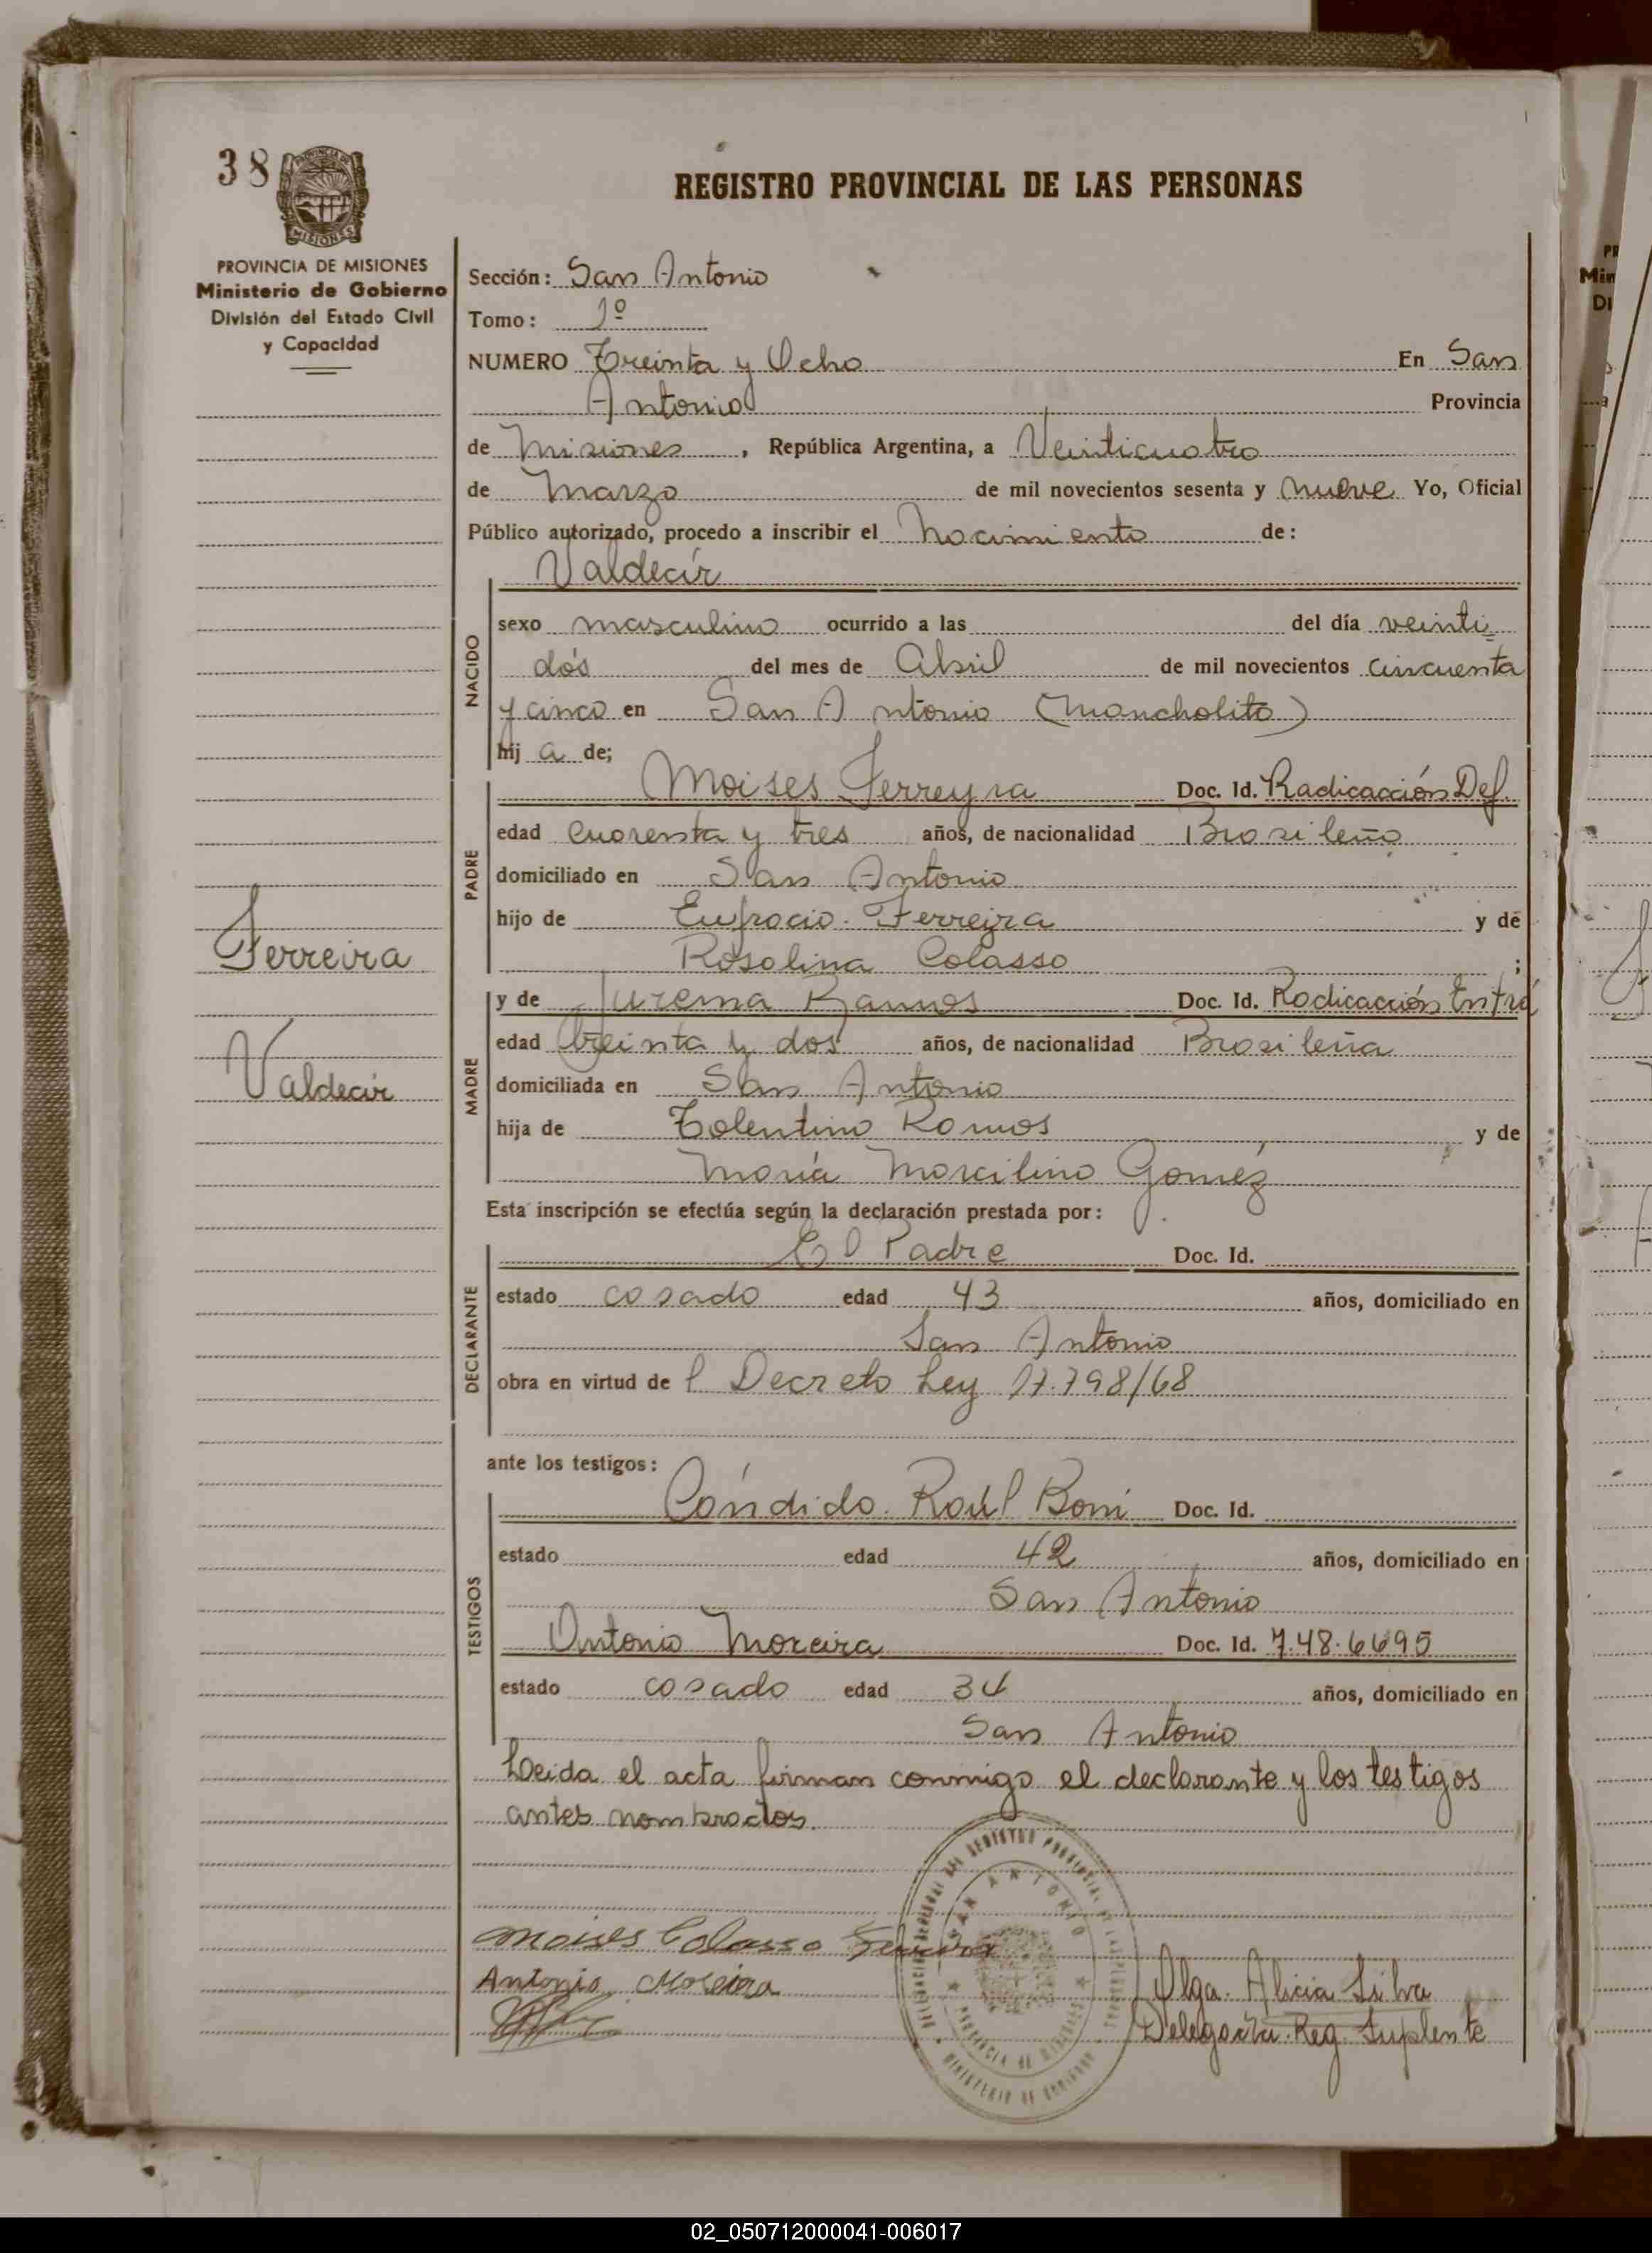 38
PROVINCIA DE MISIONES
Ministerio de Gobierno
División del Estado Civil
y Capacidad
REGISTRO PROVINCIAL DE LAS PERSONAS
Sección: San Antonio
Tomo: 1º
NUMERO Treinta y Ocho En San
Antonio Provincia
de Misiones, República Argentina, a Veinticuatro
de Marzo de mil novecientos sesenta y nueve Yo, Oficial
Público autorizado, procedo a inscribir el nacimiento de:
Valdecir
NACIDO
sexo masculino ocurrido a las del día veinti
dós del mes de Abril de mil novecientos cincuenta
y cinco en San Antonio (Mancholito)
hij a de;
PADRE
Moises Ferreyra Doc. Id. Radicacción Def.
edad cuarenta y tres años, de nacionalidad Brasileño
domiciliado en San Antonio
hijo de Eufracio Ferreira y de
Rosolina Colasso ;
Ferreira
Valdecir
MADRE
y de Jurema Ramos Doc. Id. Radicacción En trá
edad treinta y dos años, de nacionalidad Brasileña
domiciliada en San Antonio
hija de Tolentino Ramos y de
María Marcilino Goméz
Esta inscripción se efectúa según la declaración prestada por:
DECLARANTE
El Padre Doc. Id.
estado casado edad 43 años, domiciliado en
San Antonio
obra en virtud de l Decreto Ley 17.798/68
ante los testigos:
TESTIGOS
Cándido Raúl Boni Doc. Id.
estado edad 42 años, domiciliado en
San Antonio
Antonio Moreira Doc. Id. 7.48.6695
estado casado edad 34 años, domiciliado en
San Antonio
Leida el acta firman conmigo el declarante y los testigos
antes nombrados.
Moises Colasso Ferreira
Antonio Moreira
Olga Alicia Silva
Delegada Reg. Suplente
SAN ANTONIO
PROVINCIA DE MISIONES
MINISTERIO DE GOBIERNO
02_050712000041-006017